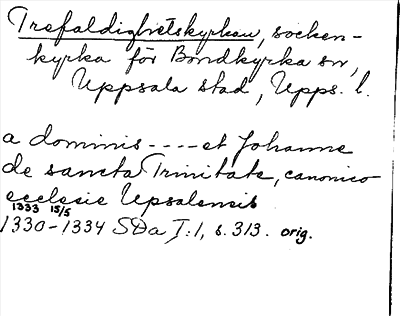 Trefaldighetskyrkan, socken-
kyrka för Bondkyrka sn,
Uppsala stad, Upps. l.
a dominis ---- et Johanne
de sancta Trinitate, canonico
ecclesie Upsalensis
1333 15/5
1330-1334 SDa I:1, s. 313. orig.